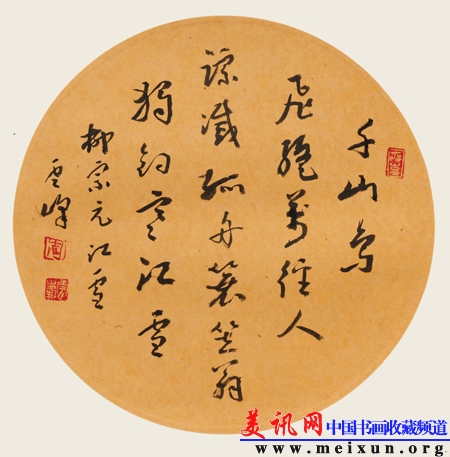 千山鳥
飛絕萬徑人
踪滅孤舟蓑笠翁
獨釣寒江雪
柳宗元江雪
雲峰
美讯网 中国书画收藏频道
www.meixun.org